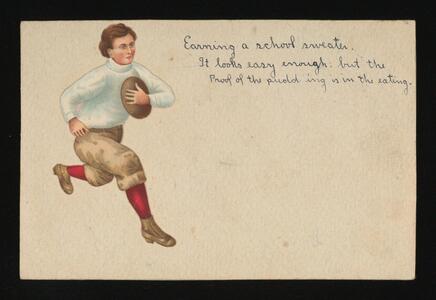 Earning a school sweater.
It looks easy enough: but the
Proof of the pudd ing is in the eating.